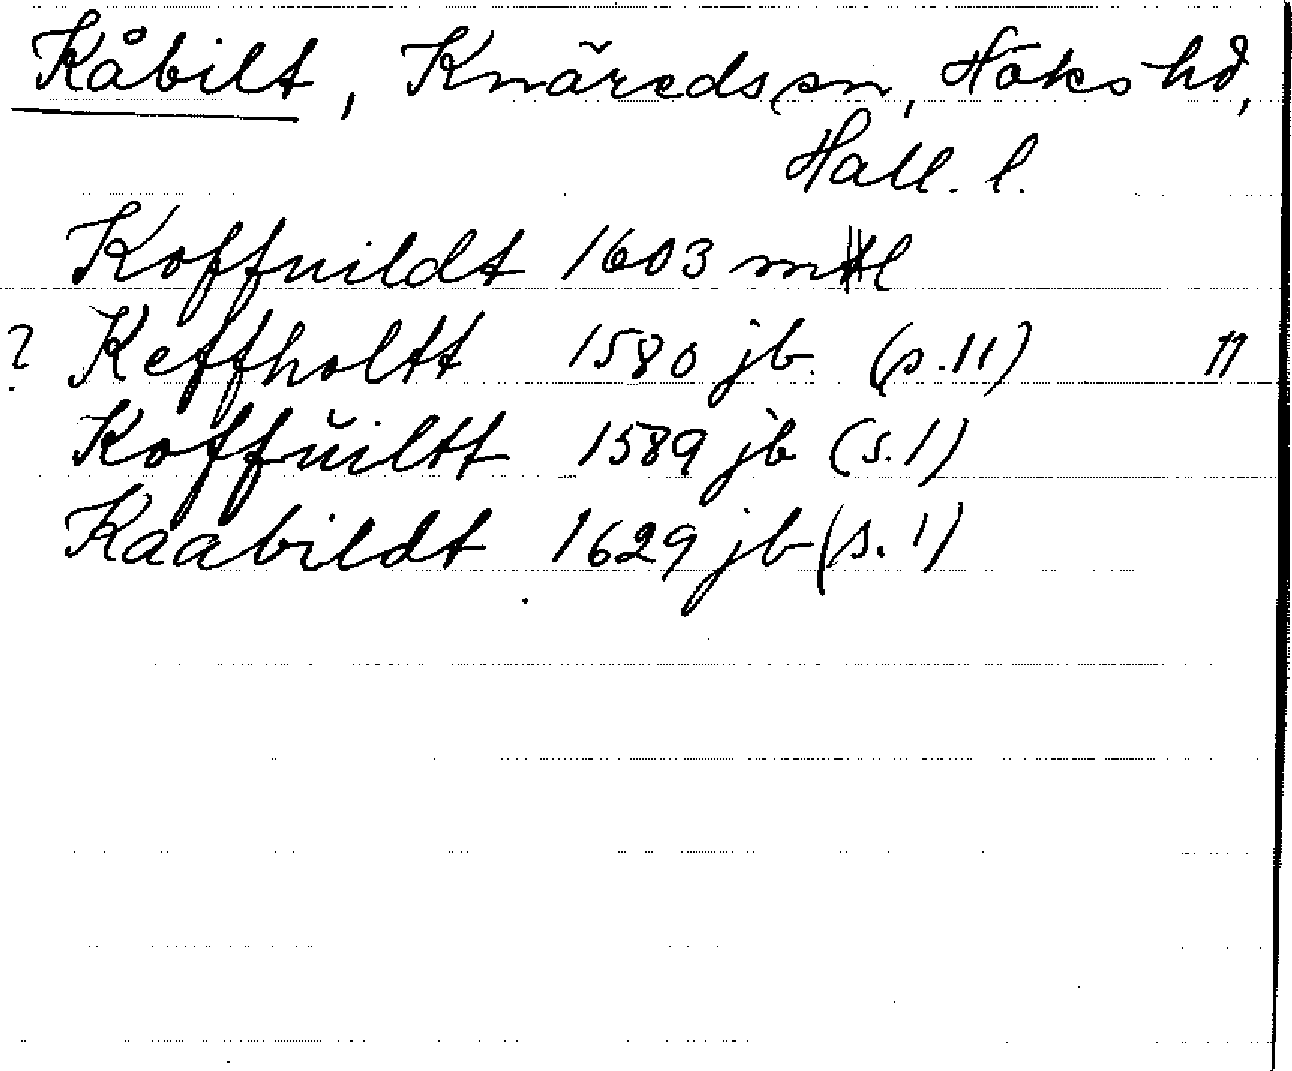 Kåbilt, Knäreds sn, Höks hd,
Hall. l.
Koffuildt 1603 mtl
? Keffholtt 1580 jb. (s. 11) "
Koffŭiltt 1589 jb (s. 1)
Kaabildt 1629 jb (s. 1)